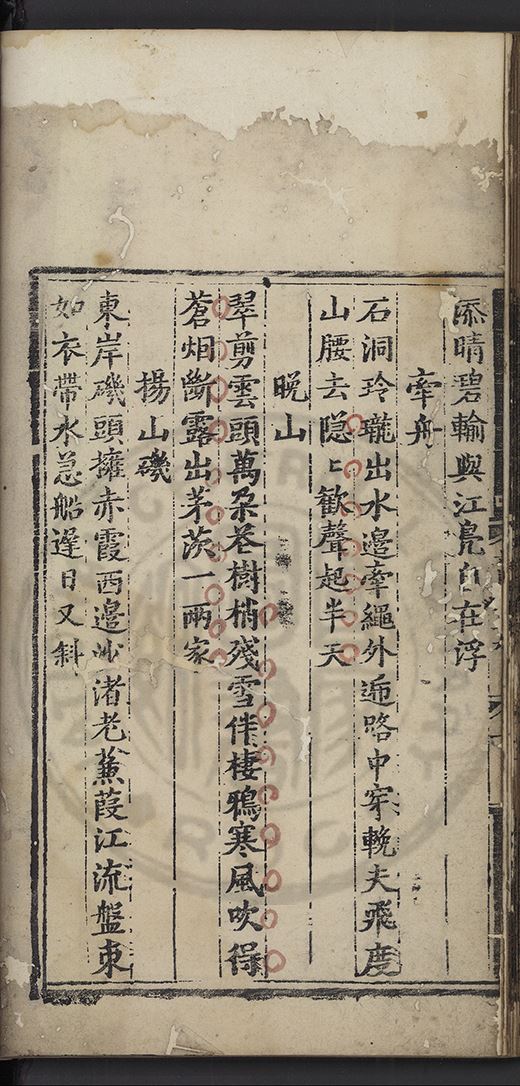 添晴碧輸與江鳧自在浮
牽舟
石洞玲瓏出水邊牽繩外逅路中穿輓夫飛度
山腰去隠〻歡聲起半天
晚山
翠剪雲頭萬朶巻樹梢殘雪伴棲鴉寒風吹得
蒼烟斷露出茅茨一兩家
揚山磯
東岸磯頭擁赤霞西邊沙渚老蒹葭江流盤束
如衣帶水急船遲日又斜